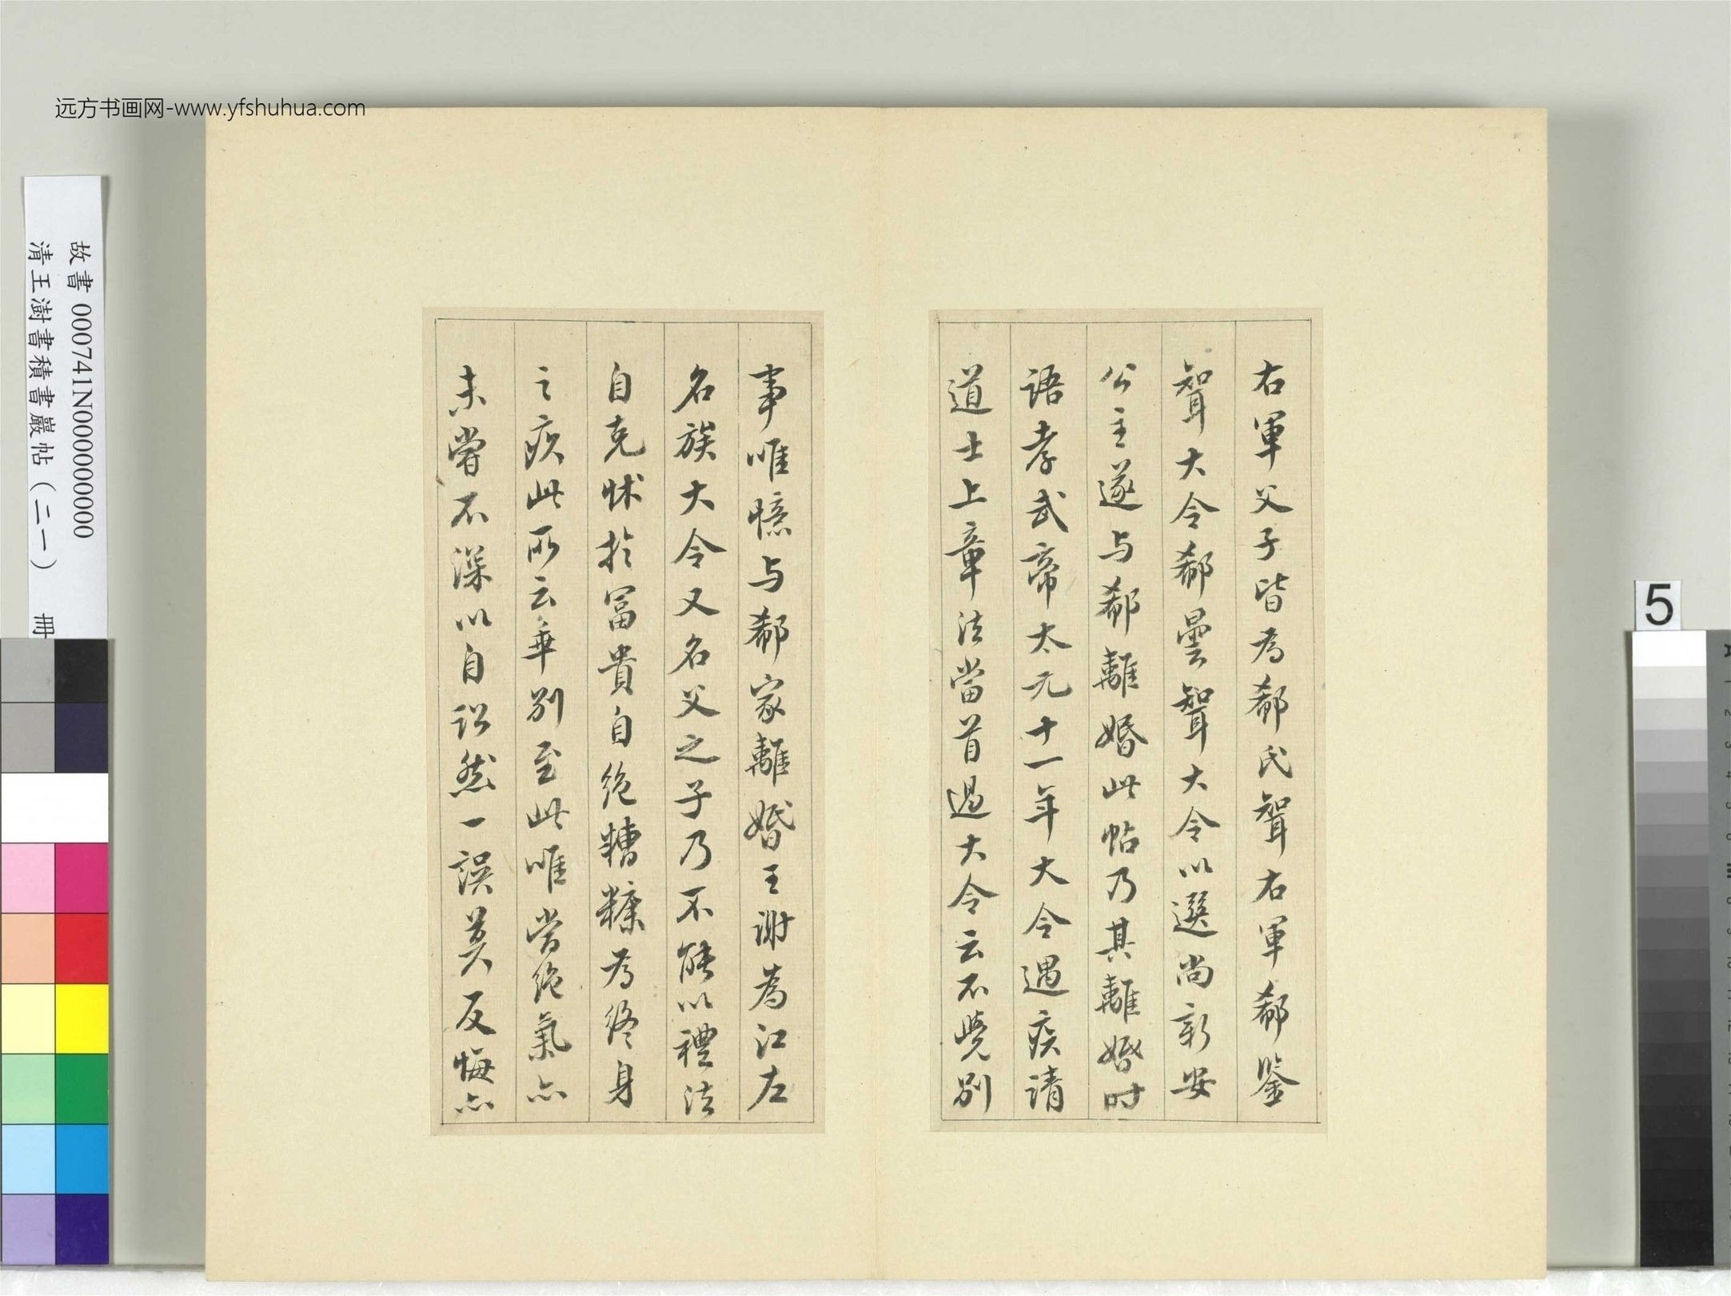 远方书画网-www.yfshuhua.com
故書 000741N000000000
清王澍書積書巖帖（二一） 冊
5
右軍父子皆為郗氏壻右軍郗鑒
壻大令郗曇壻大令以選尚新安
公主遂与郗離婚此帖乃其離婚时
語孝武帝太元十一年大令遇疾請
道士上章法當首過大令云不覺別
事唯憶与郗家離婚王謝為江左
名族大令又名父之子乃不能以禮法
自克怵於冨貴自絶糟糠為終身
之疚此所云乖別至此唯當絶氣亦
未嘗不深以自訟然一誤莫反悔亦